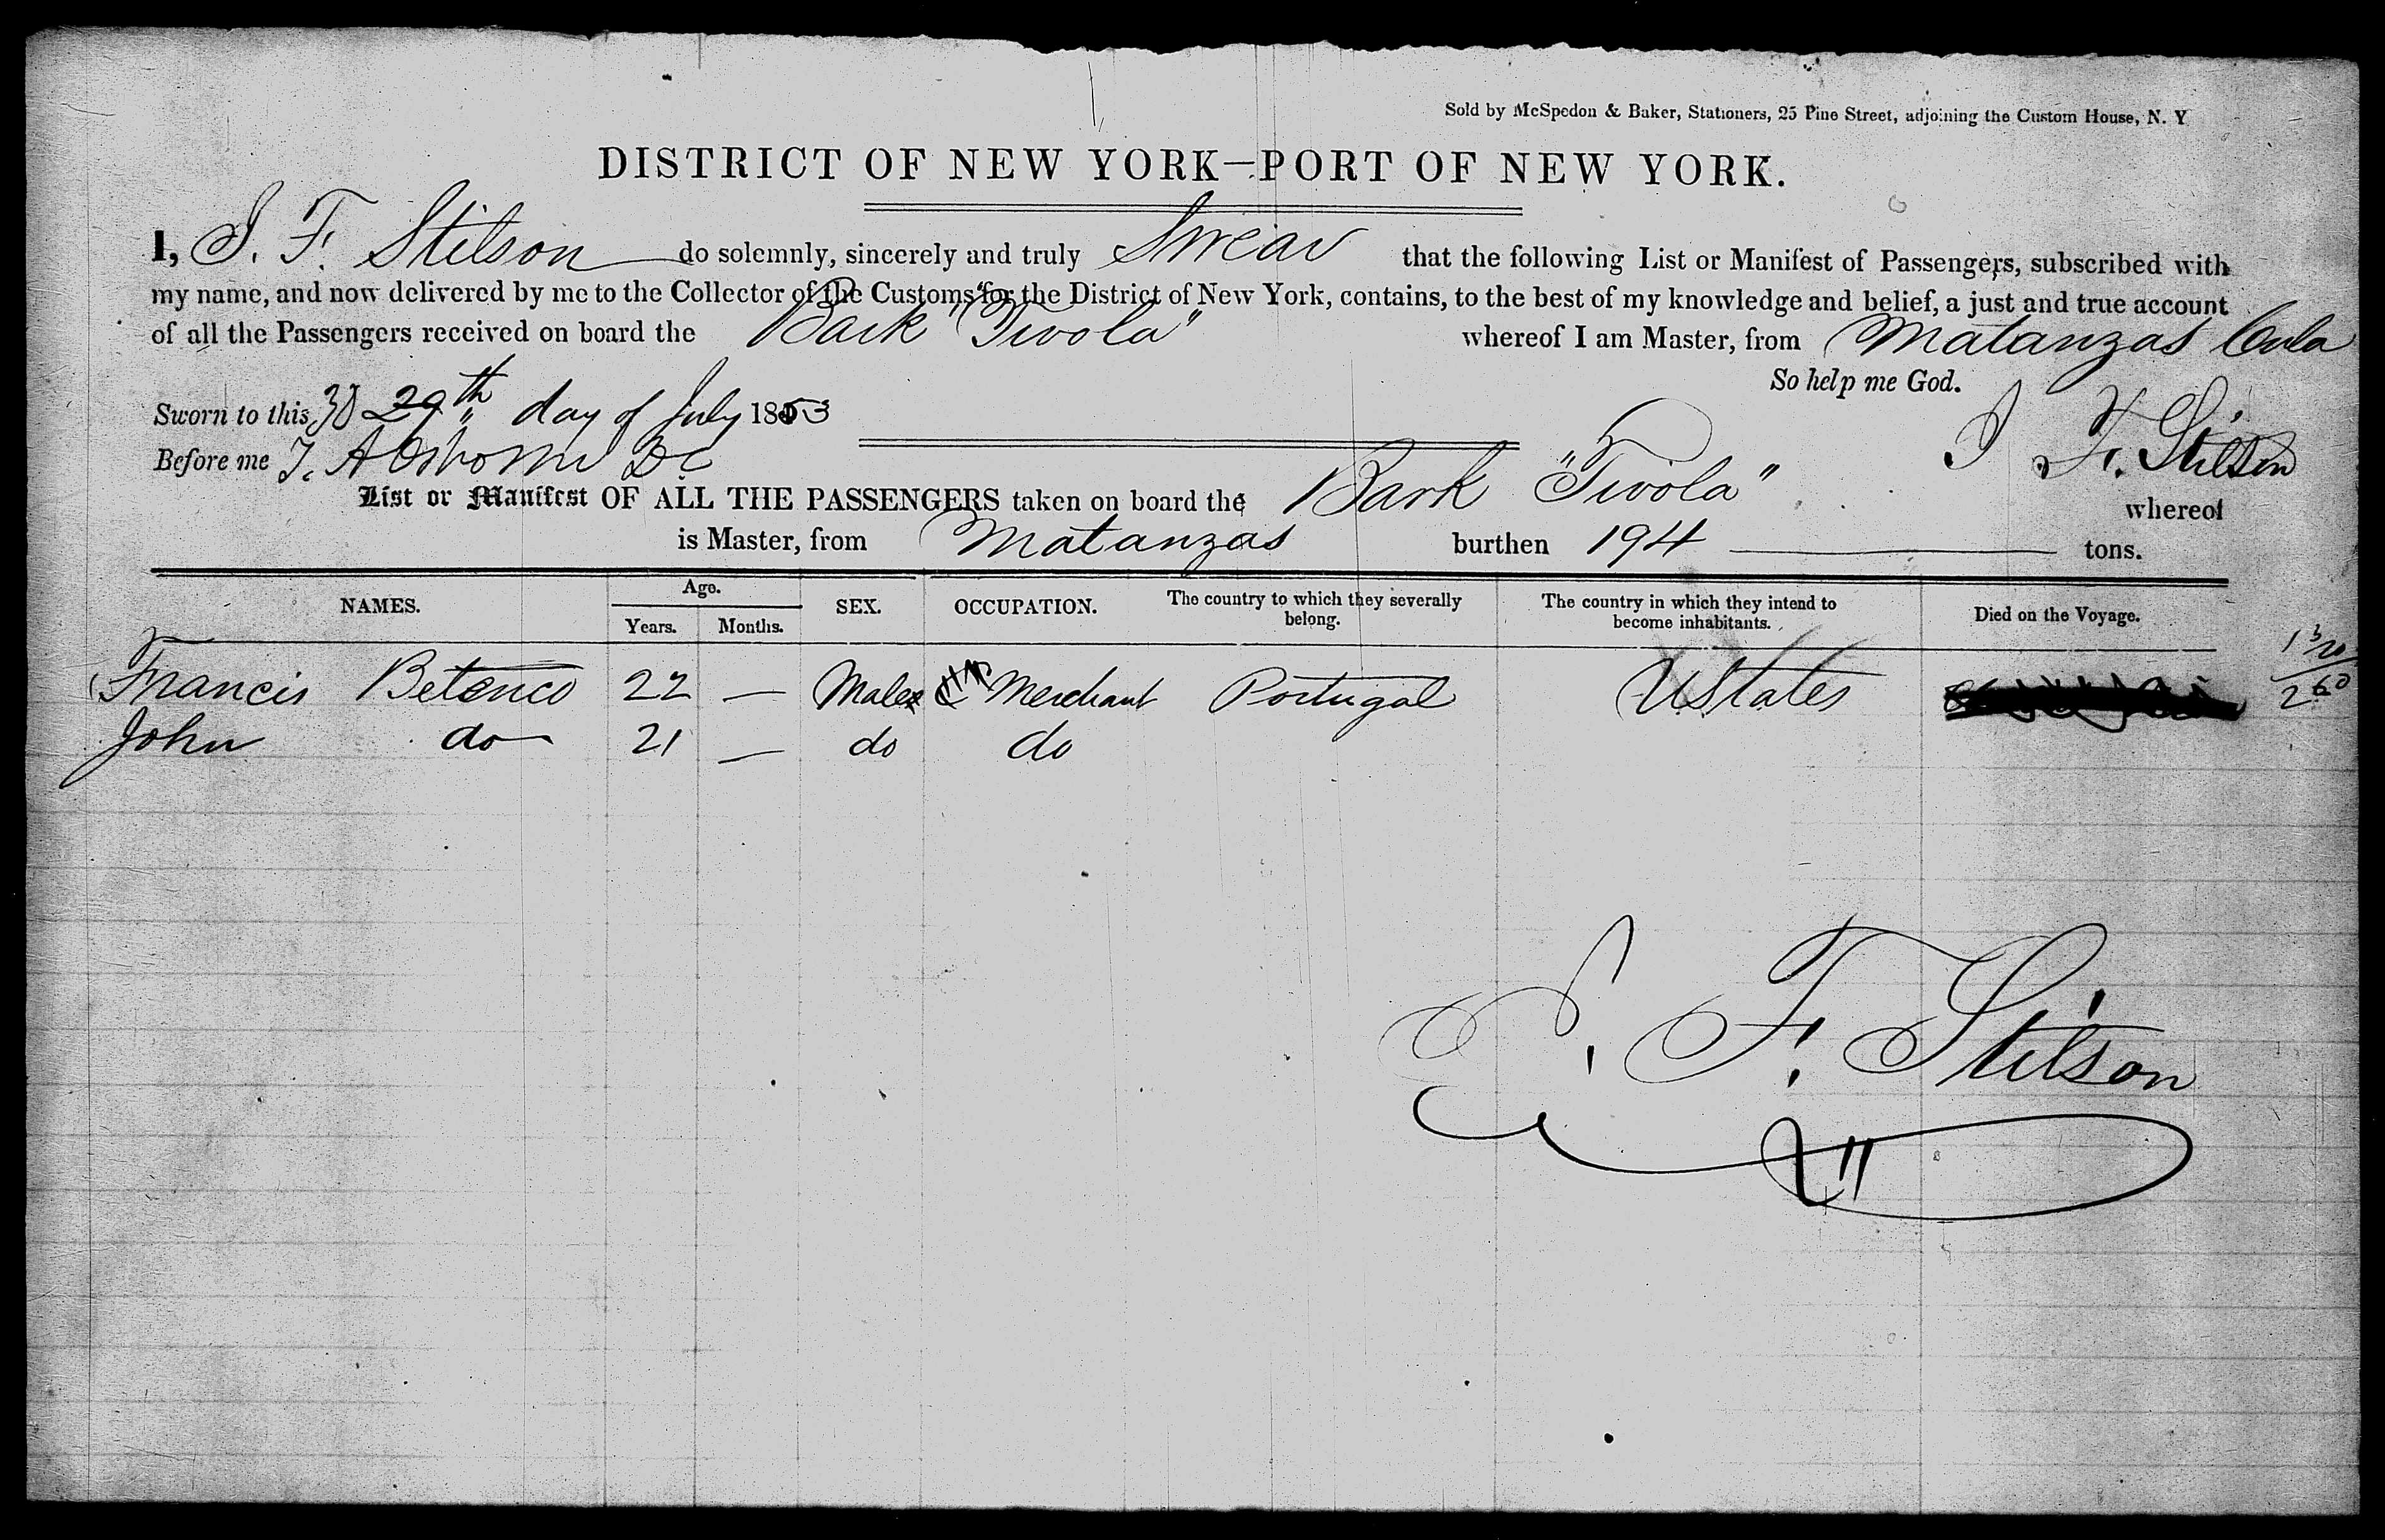 Sold by McSpedon & Baker, Stationers, 25 Pine Street, adjoining the Custom House, N. Y
DISTRICT OF NEW YORK—PORT OF NEW YORK.
I, S. F. Stilson do solemnly, sincerely and truly Swear that the following List or Manifest of Passengers, subscribed with
my name, and now delivered by me to the Collector of the Customs for the District of New York, contains, to the best of my knowledge and belief, a just and true account
of all the Passengers received on board the Bark "Tivola" whereof I am Master, from Matanzas Cuba
So help me God.
Sworn to this 30 29th day of July 1853
Before me T. A Osborne DC S F. Stilson
List or Manifest OF ALL THE PASSENGERS taken on board the Bark "Tivola" whereof
is Master, from Matanzas burthen 194 tons.
NAMES. Age. Years. Months. SEX. OCCUPATION. The country to which they severally belong. The country in which they intend to become inhabitants. Died on the Voyage.
Francis Betenco 22 — Male Merchant Portugal UStates
John do 21 — do do
2 60
S. F. Stilson